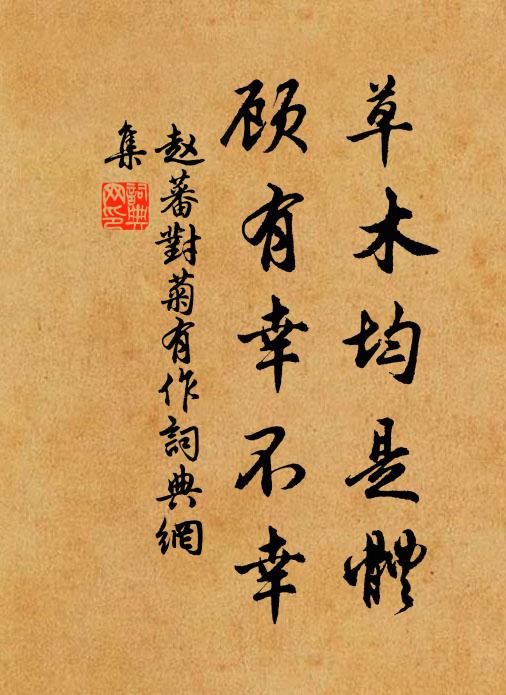 草木均是體
顾有幸不幸
赵蕃對菊有作詞典網
集
詞典网印